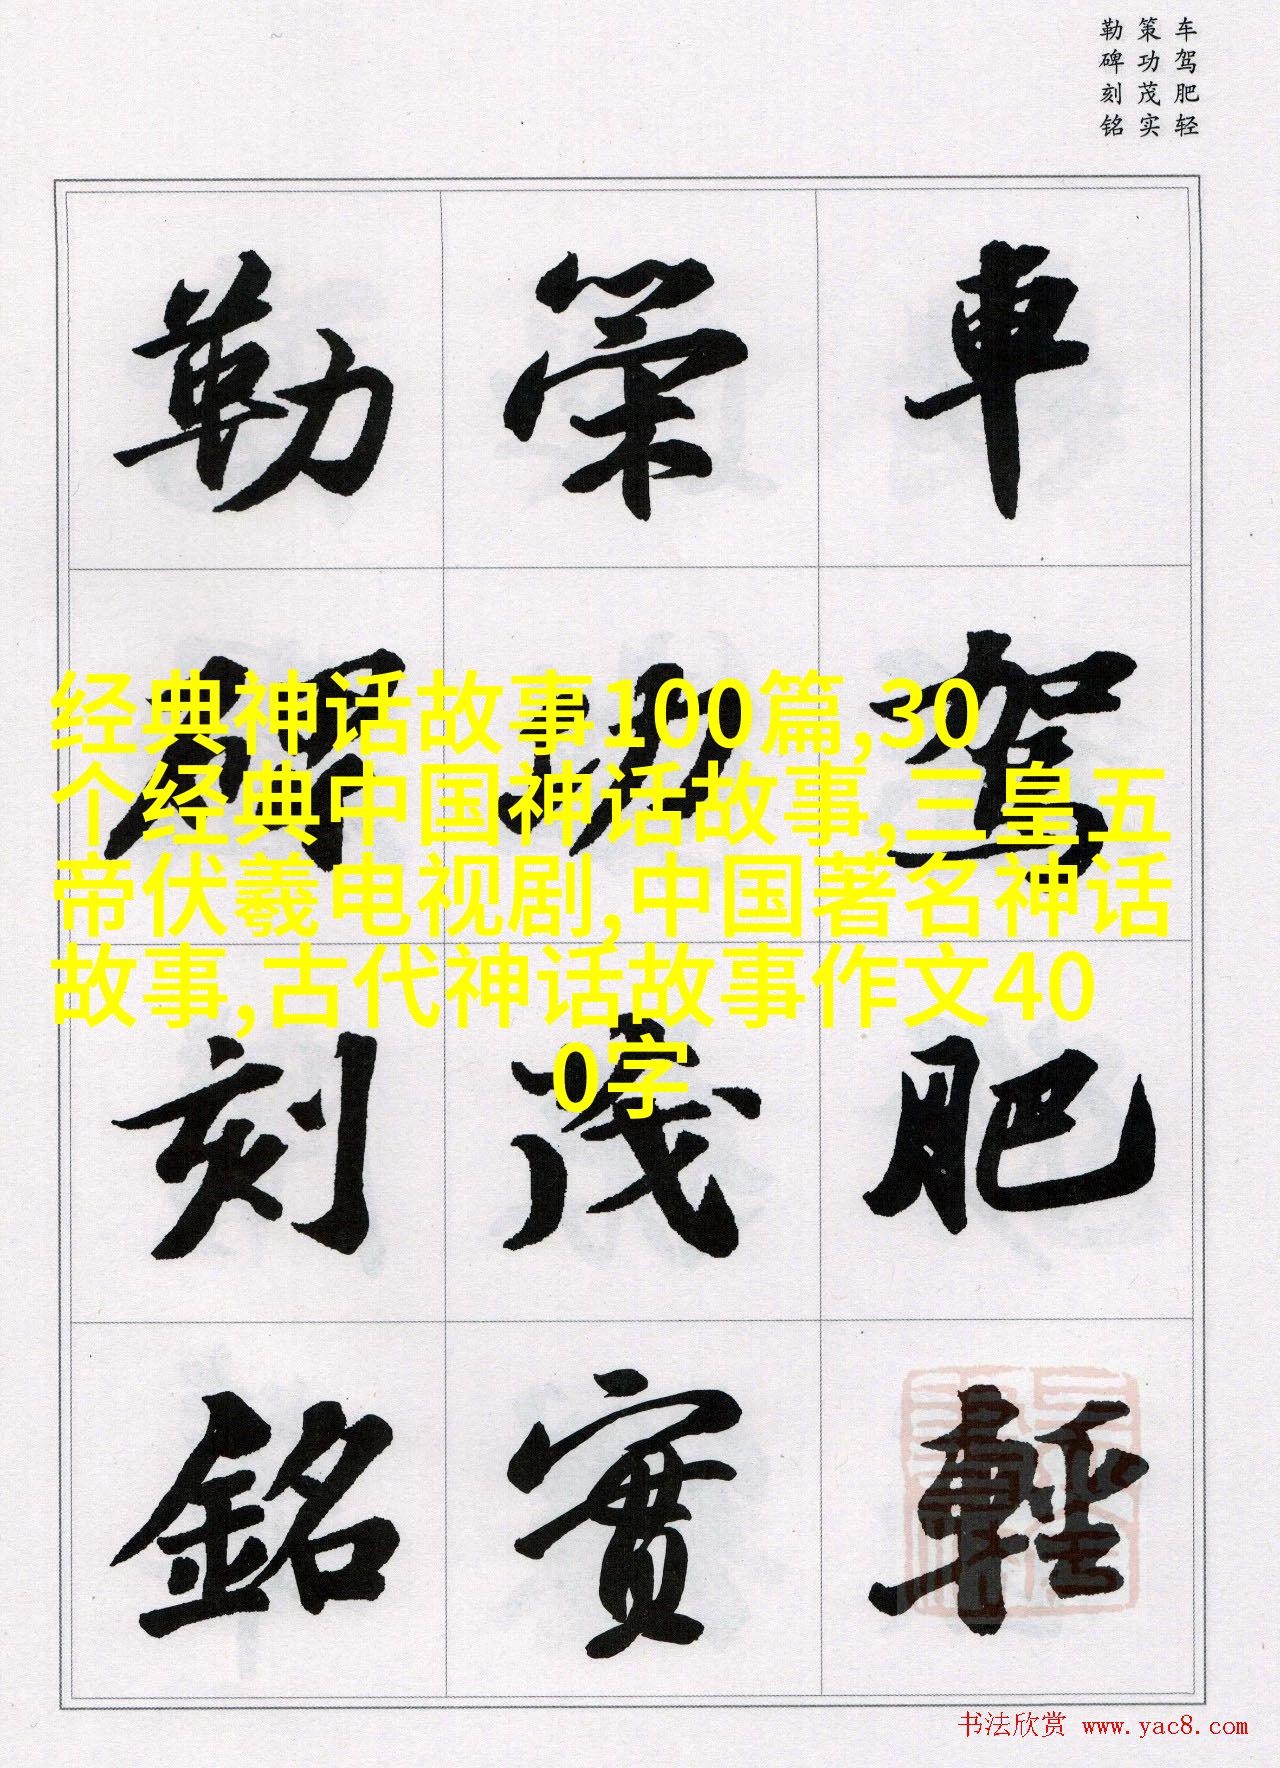 车驾肥轻
策功茂实
勒碑刻铭
車駕肥輕
策功茂實
勒碑刻銘
经典神话故事100篇,30
个经典中国神话故事,三皇五
帝伏羲电视剧,中国著名神话
故事,古代神话故事作文40
0字
书法欣赏 www.yac8.com